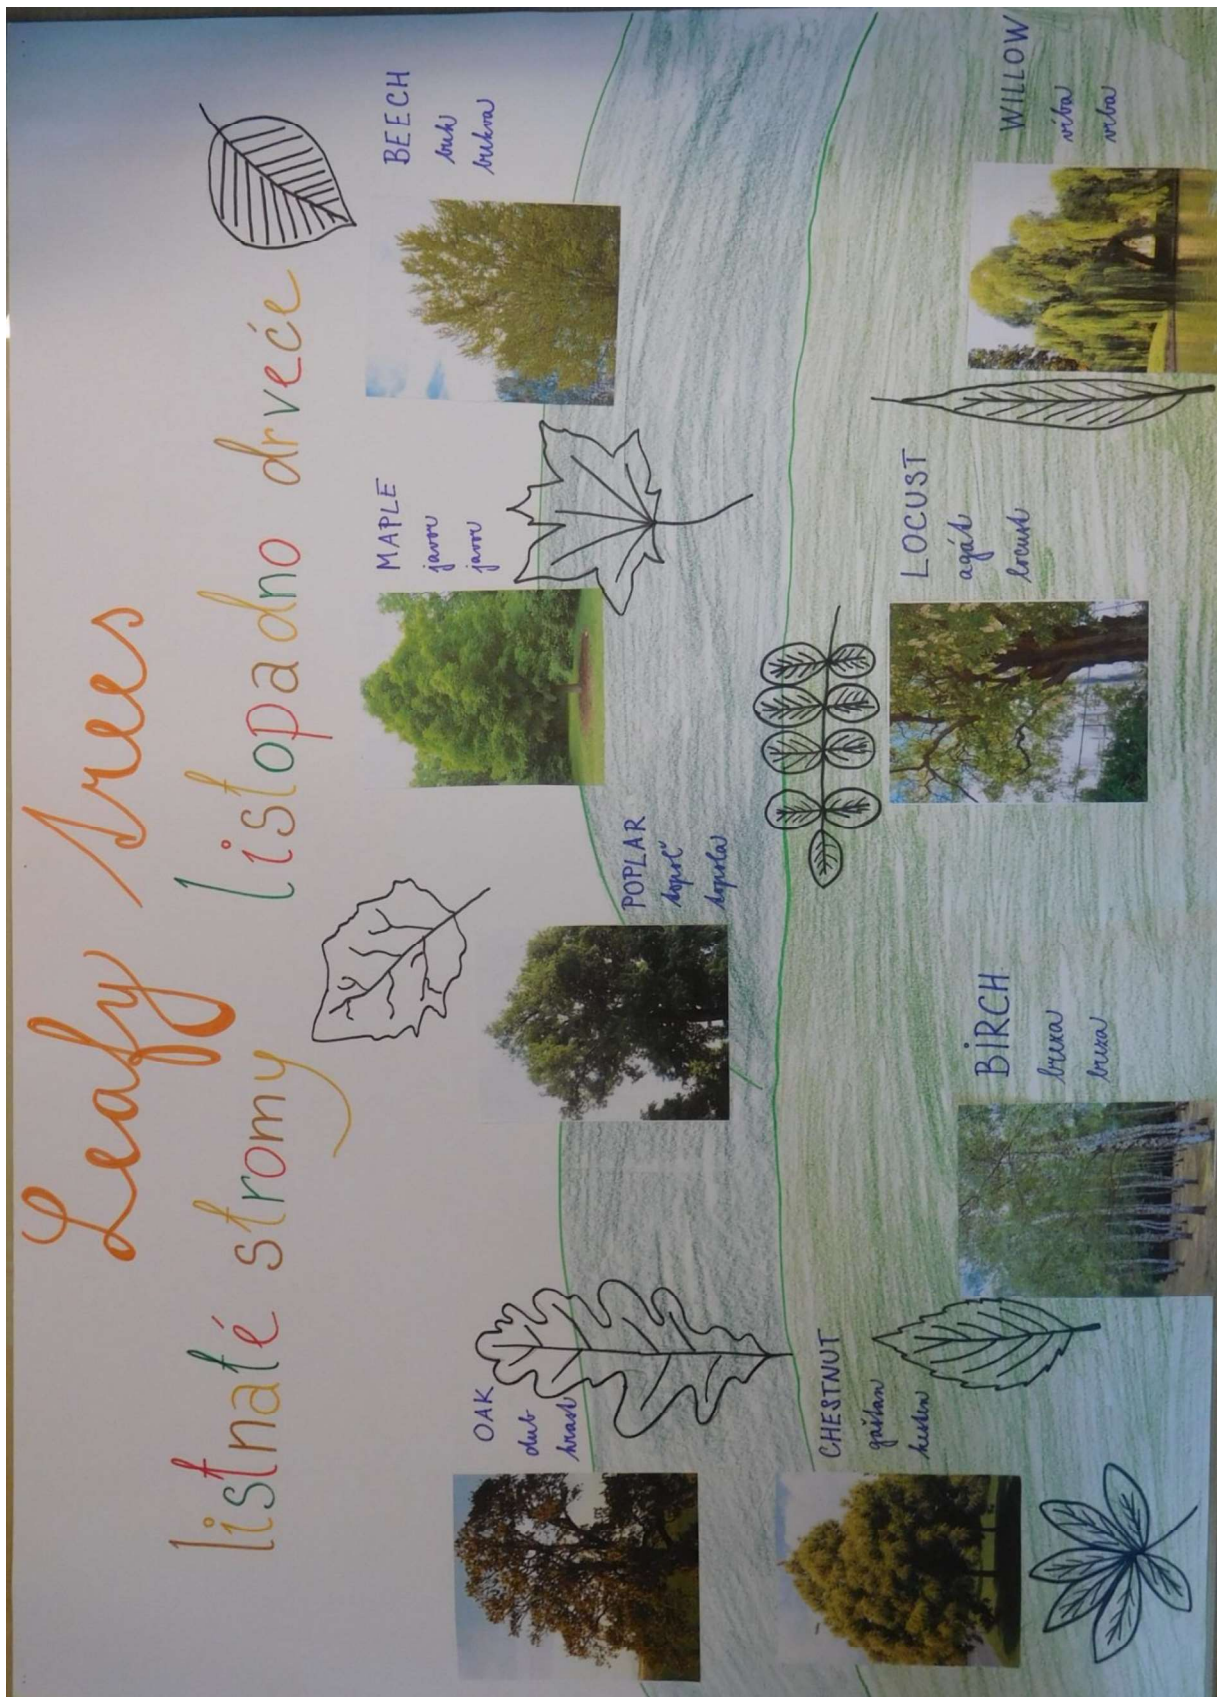 Leafy trees
listnaté stromy
listopadno drveće
OAK
dub
hrast
POPLAR
topoľ
topola
MAPLE
javor
javor
BEECH
buk
bukva
CHESTNUT
gaštan
kesten
BIRCH
breza
breza
LOCUST
agát
locust
WILLOW
vŕba
vrba